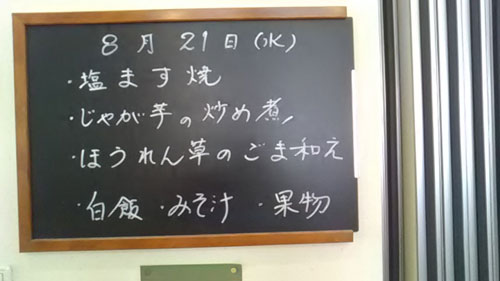 8月21日(水)
・塩ます焼
・じゃが芋の炒め煮
・ほうれん草のごま和え
・白飯 ・みそ汁 ・果物